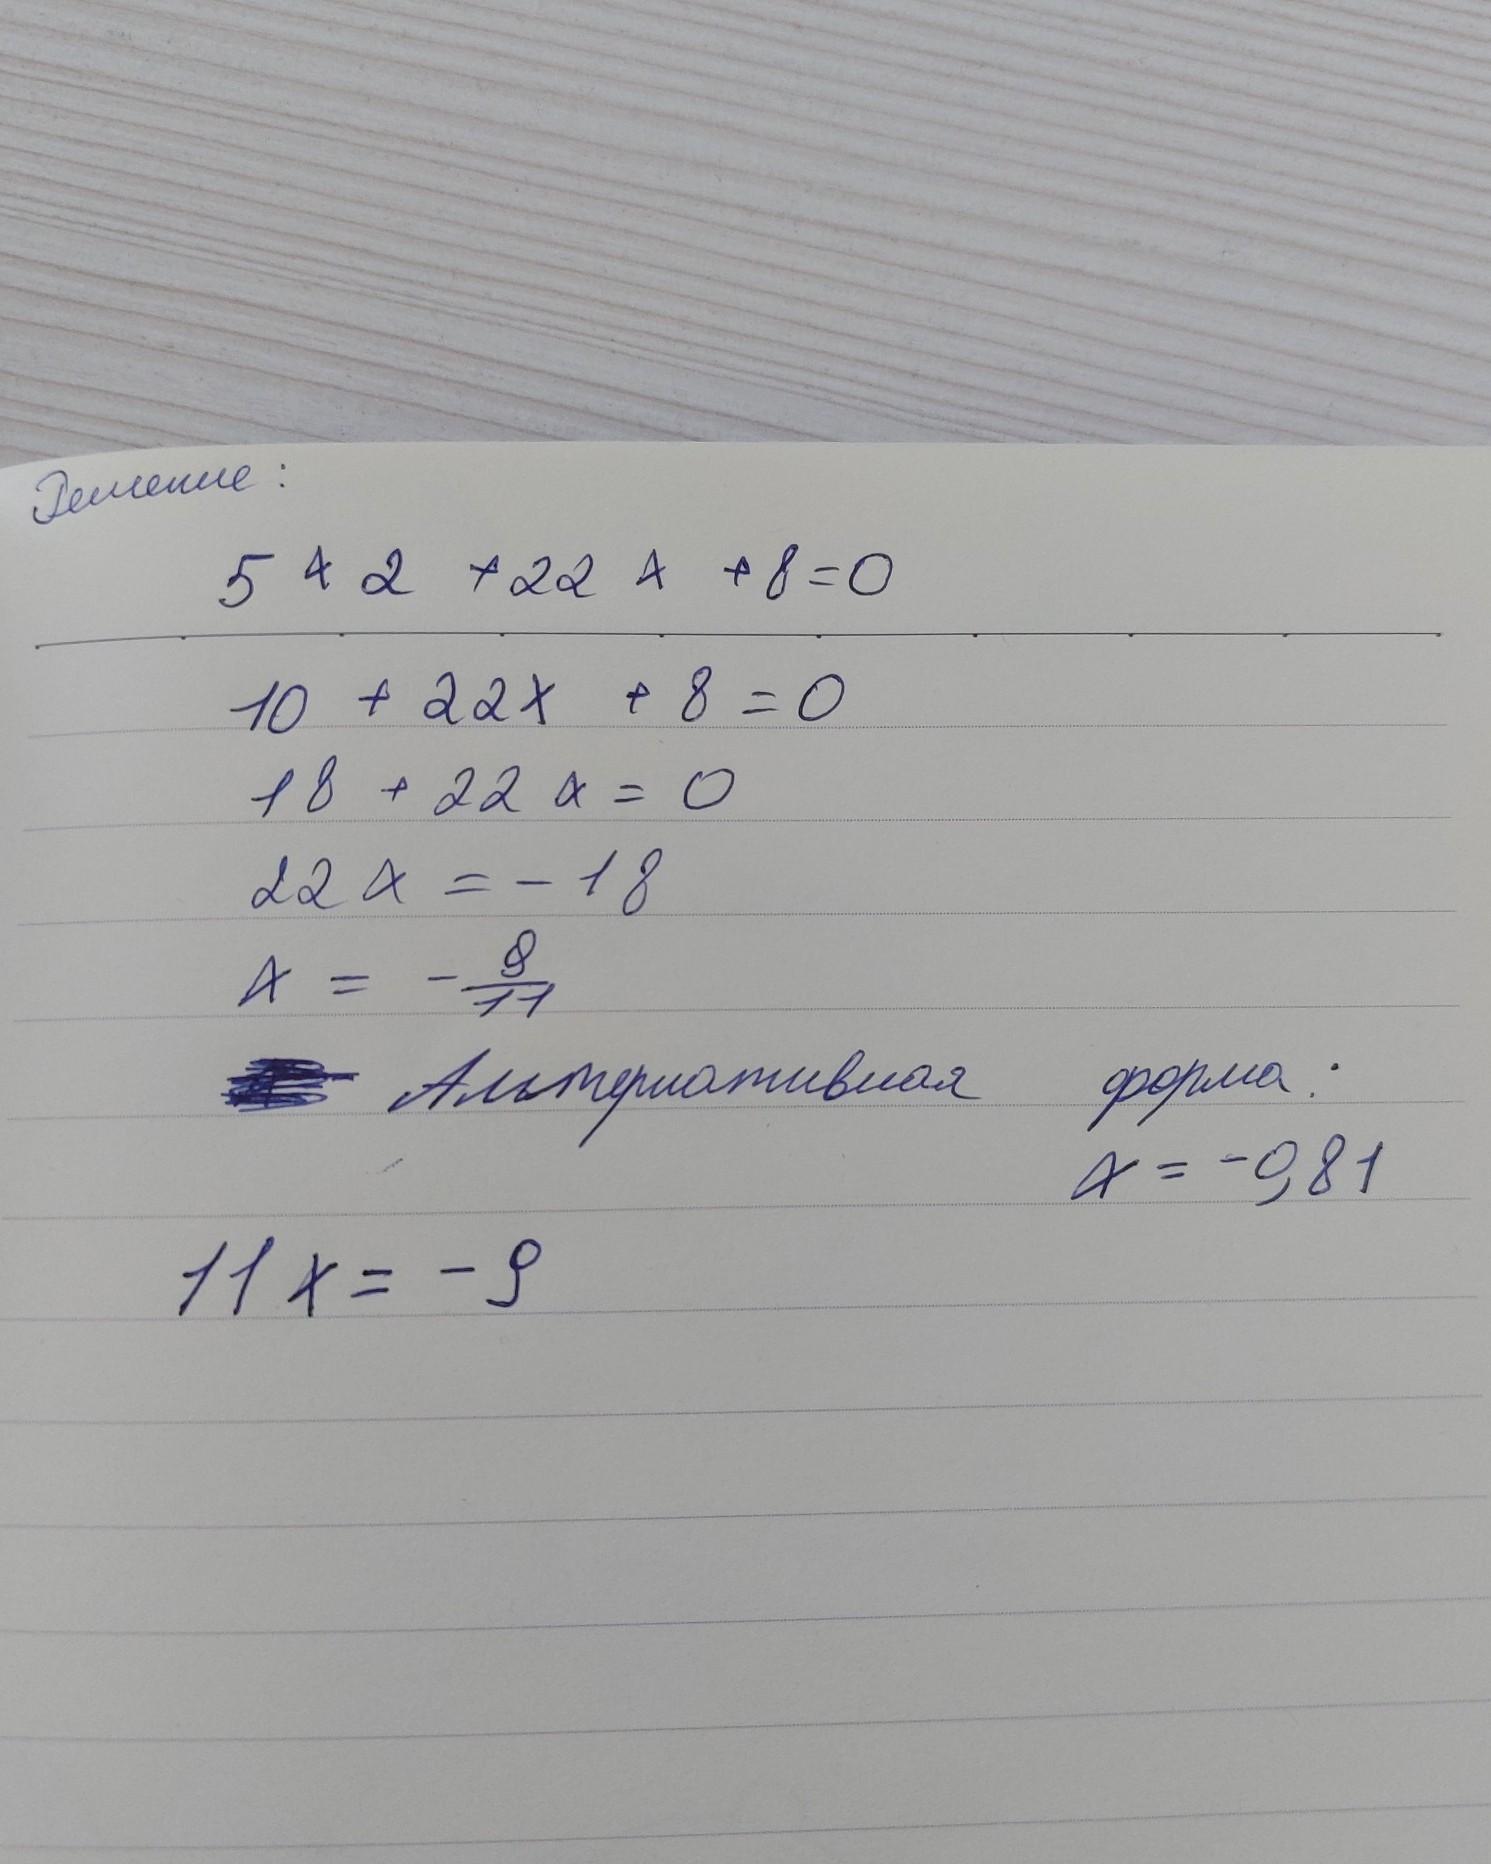 Решение:
5 x 2 + 22 x + 8 = 0
10 + 22x + 8 = 0
18 + 22 x = 0
22 x = - 18
x = - 9/11
Альтернативная форма:
x = -0,81
11 x = - 9